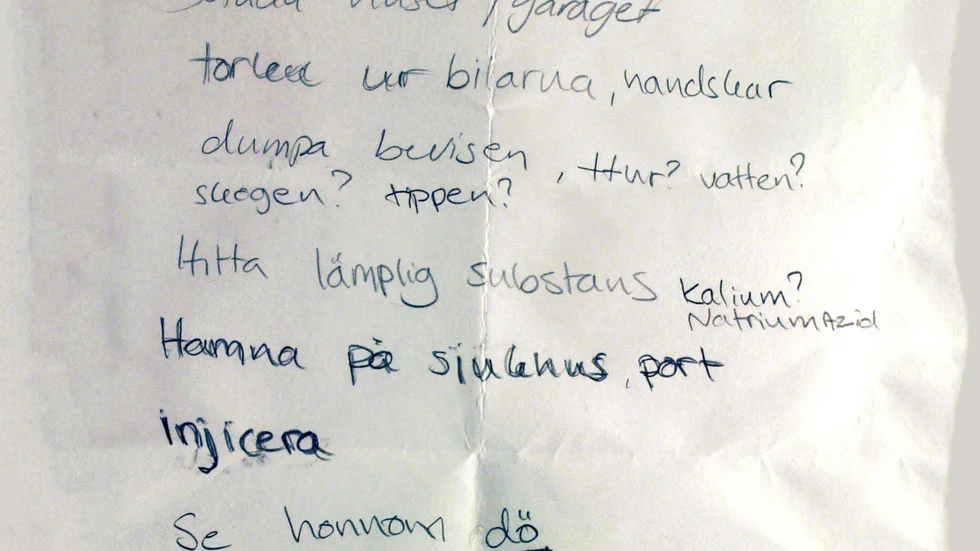 huset / garaget
torka ur bilarna, handskar
dumpa bevisen, Hur? vatten?
skogen? tippen?
Hitta lämplig substans Kalium?
NatriumAzid
Hamna på sjukhus, port
injicera
Se honnom dö